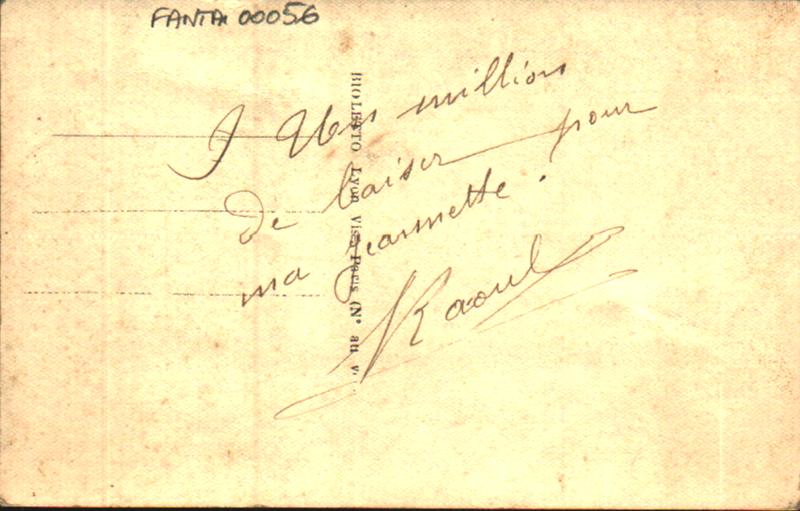 FANTAI 00056
1 Un million
de baiser pour
ma Jeannette.
Raoul
BIOLETTO Lyon Visa Paris (N° au v